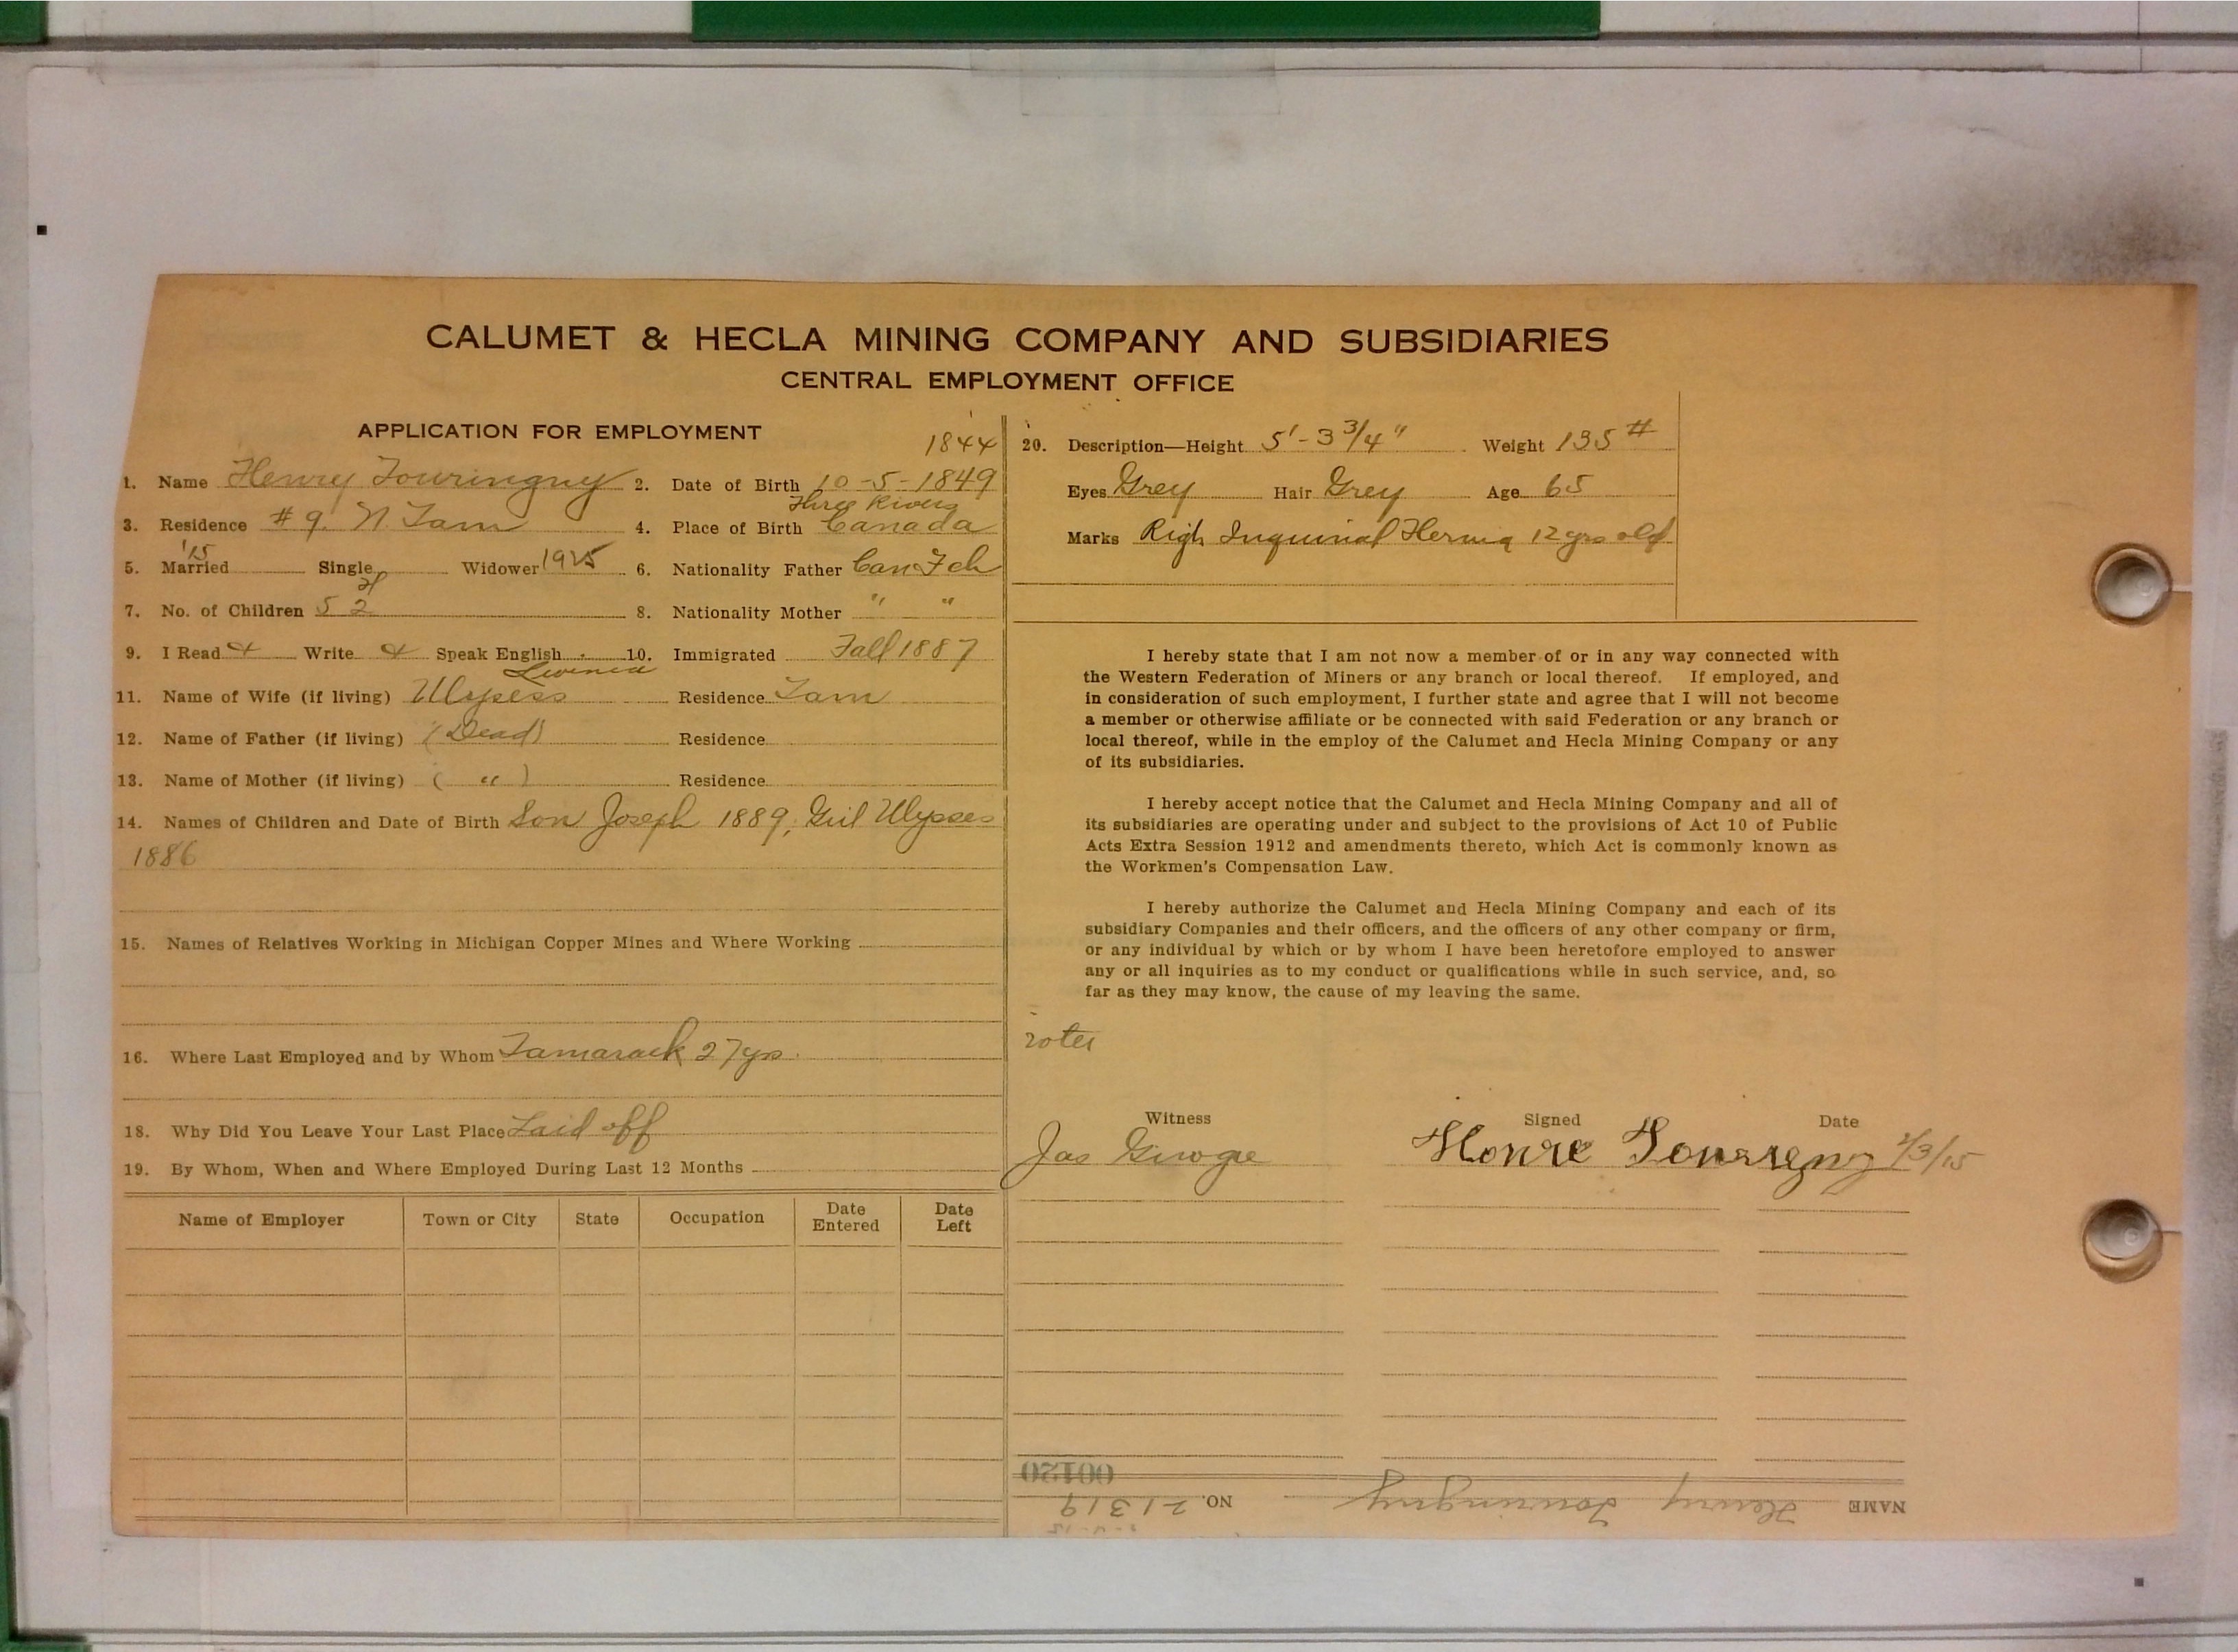 CALUMET & HECLA MINING COMPANY AND SUBSIDIARIES
CENTRAL EMPLOYMENT OFFICE
APPLICATION FOR EMPLOYMENT
1844
1. Name Henry Touringny 2. Date of Birth 10-5-1849
Three Rivers
3. Residence #9. N. Tam 4. Place of Birth Canada
'15
5. Married Single Widower 1925 6. Nationality Father Can Fch
7. No. of Children 5 2 8. Nationality Mother " "
9. I Read & Write & Speak English 10. Immigrated Fall 1887
11. Name of Wife (if living) Ulysess Residence Tam
12. Name of Father (if living) (Dead) Residence
13. Name of Mother (if living) ( " ) Residence
14. Names of Children and Date of Birth Son Joseph 1889, Girl Ulysses
1886
15. Names of Relatives Working in Michigan Copper Mines and Where Working
16. Where Last Employed and by Whom Tamarack 27 yrs.
18. Why Did You Leave Your Last Place Laid off
19. By Whom, When and Where Employed During Last 12 Months
Name of Employer Town or City State Occupation Date Entered Date Left
20. Description—Height 5'-3 3/4" Weight 135 #
Eyes Grey Hair Grey Age 65
Marks Righ Inquinal Hernia 12 yrs old
I hereby state that I am not now a member of or in any way connected with
the Western Federation of Miners or any branch or local thereof. If employed, and
in consideration of such employment, I further state and agree that I will not become
a member or otherwise affiliate or be connected with said Federation or any branch or
local thereof, while in the employ of the Calumet and Hecla Mining Company or any
of its subsidiaries.
I hereby accept notice that the Calumet and Hecla Mining Company and all of
its subsidiaries are operating under and subject to the provisions of Act 10 of Public
Acts Extra Session 1912 and amendments thereto, which Act is commonly known as
the Workmen's Compensation Law.
I hereby authorize the Calumet and Hecla Mining Company and each of its
subsidiary Companies and their officers, and the officers of any other company or firm,
or any individual by which or by whom I have been heretofore employed to answer
any or all inquiries as to my conduct or qualifications while in such service, and, so
far as they may know, the cause of my leaving the same.
Witness Signed Date
Jas /3/15
00120
NAME Henry Touringny NO. 21319